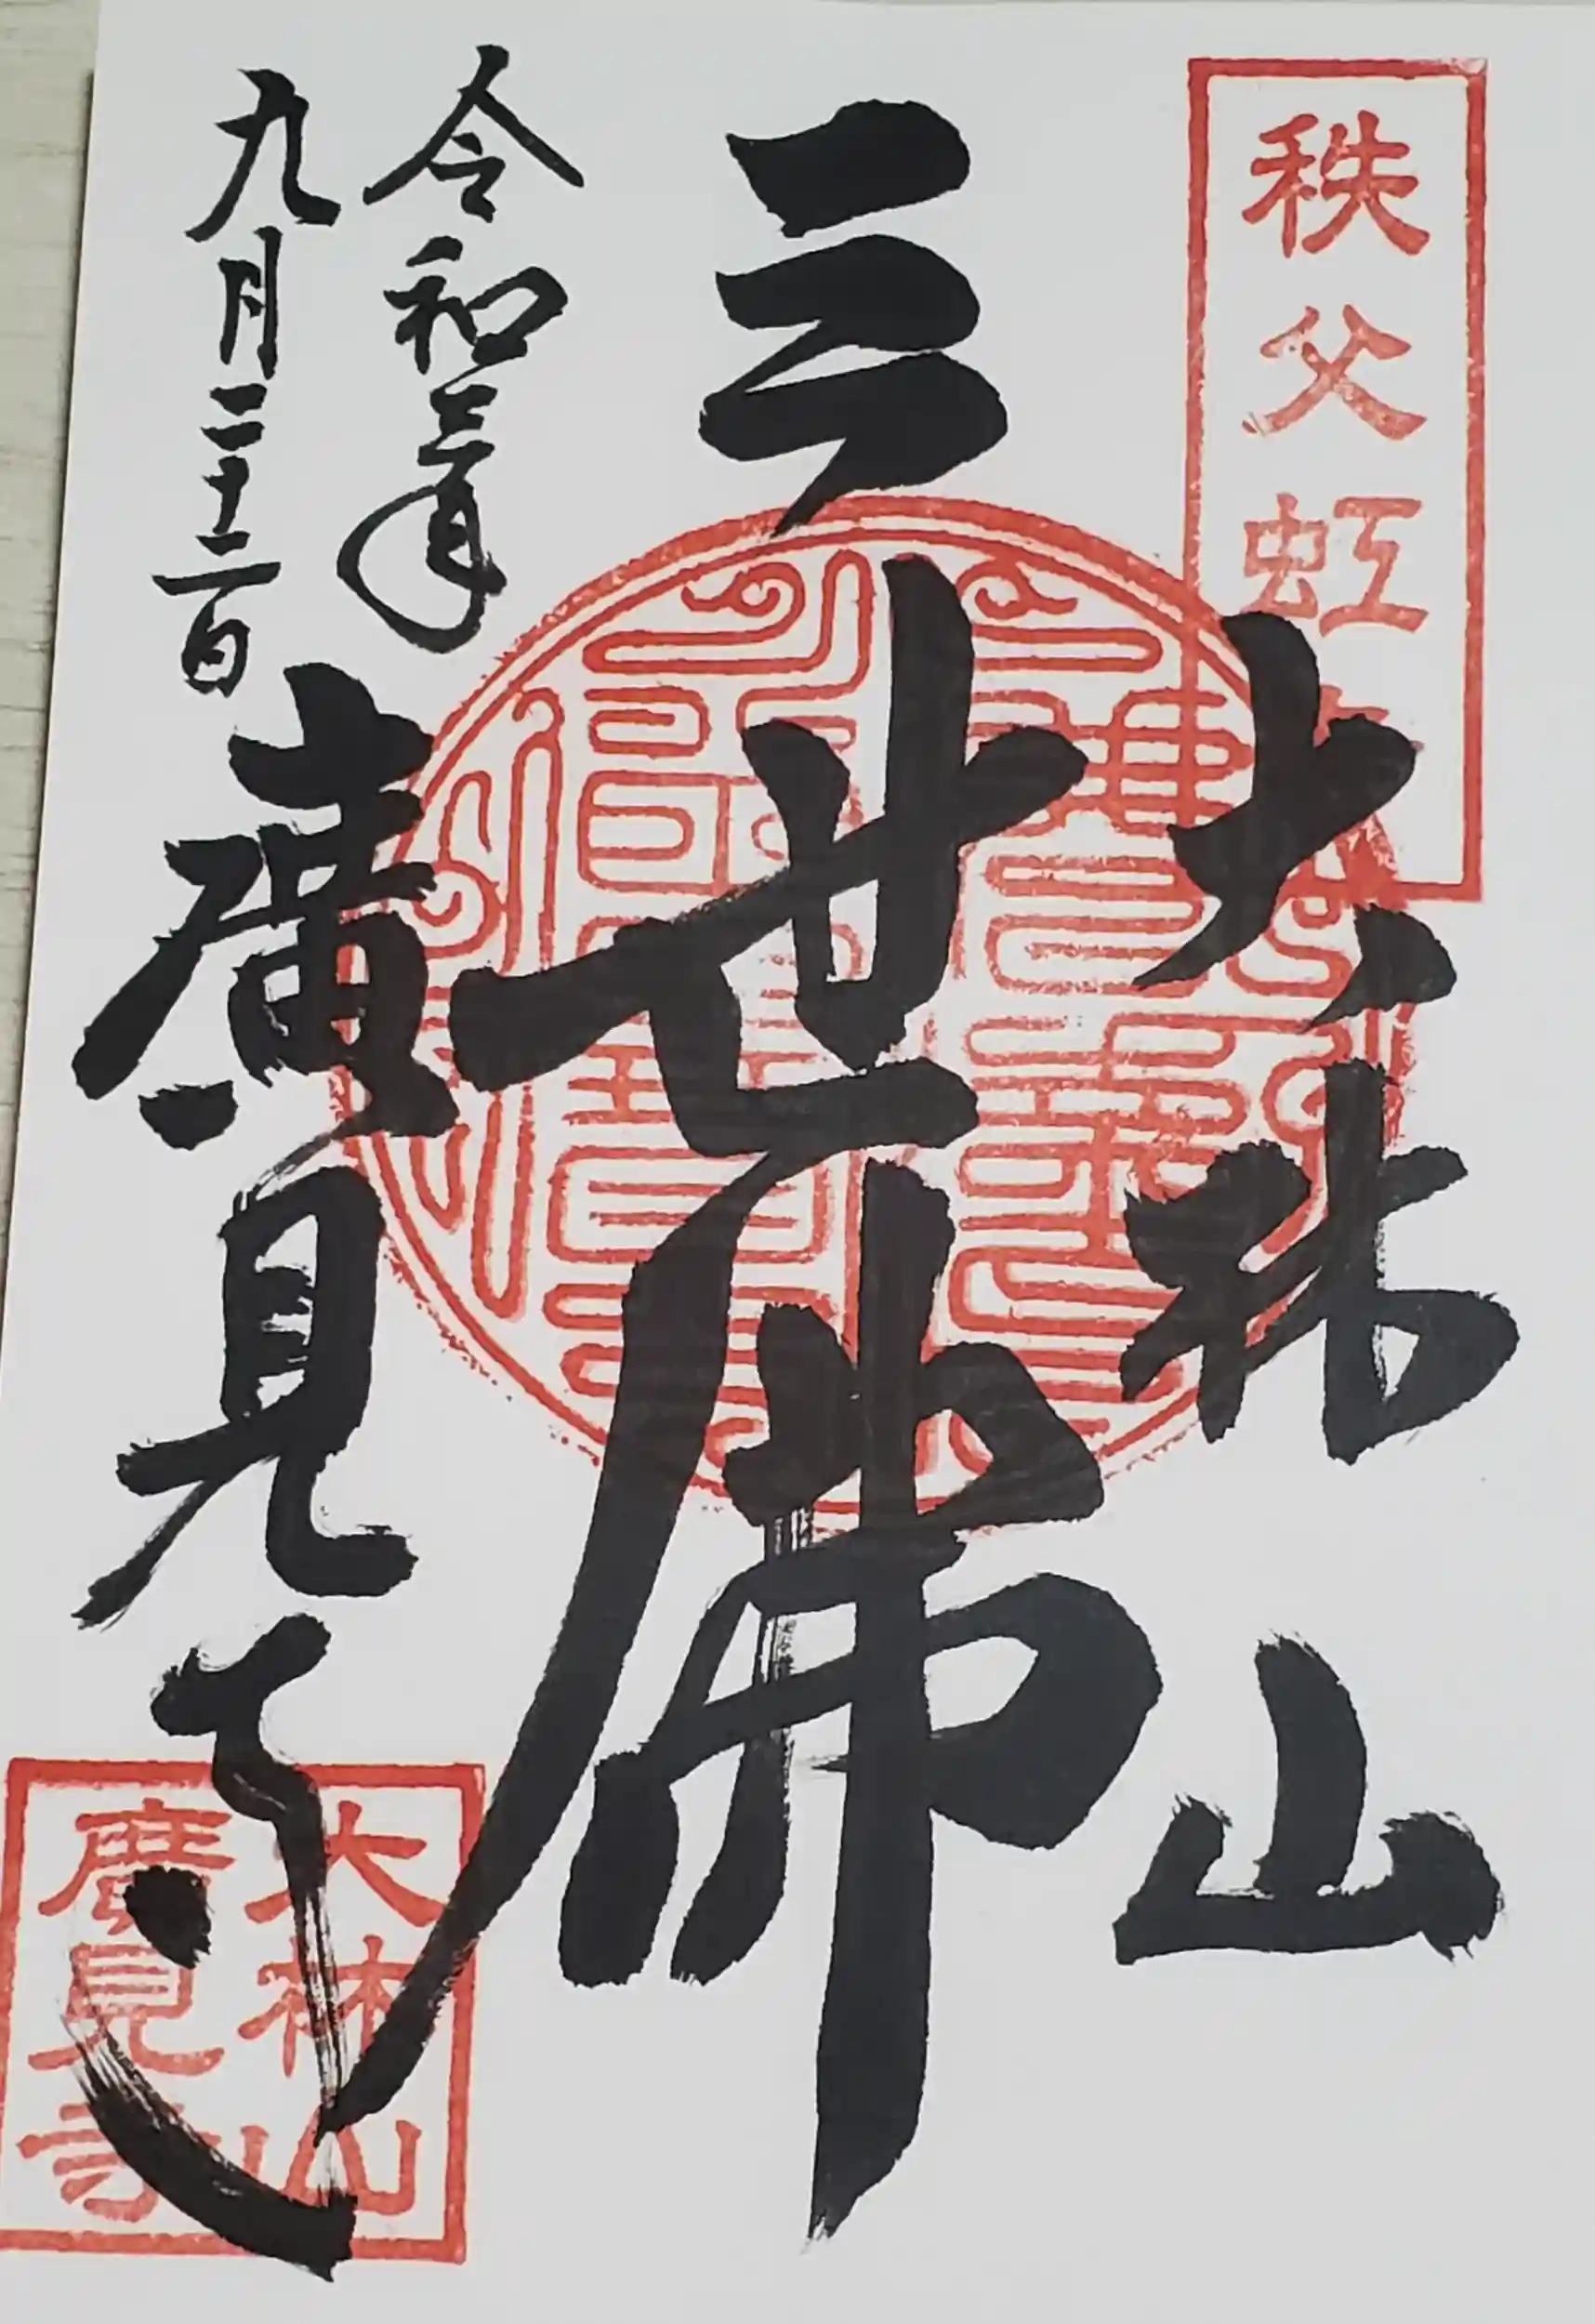 秩父虹
大林山
三世佛
令和三年
九月二十二日
廣見寺
大林山
廣見寺